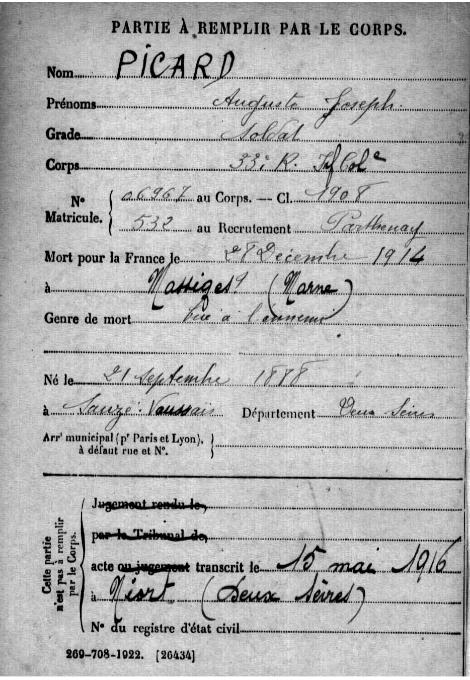 PARTIE À REMPLIR PAR LE CORPS.
Nom PICARD
Prénoms Auguste Joseph.
Grade Soldat
Corps 33e R. Inf Cole
No Matricule. { 06967 au Corps. — Cl. 1908
532 au Recrutement Parthenay
Mort pour la France le 28 Décembre 1914
à Massiges (Marne)
Genre de mort tué à l'ennemi
Né le 21 septembre 1888
à Sauzé-Vaussais Département Deux Sèvres
Arrt municipal (pr Paris et Lyon), à défaut rue et No. }
Cette partie n'est pas à remplir par le Corps.
Jugement rendu le
par le Tribunal de
acte ou jugement transcrit le 15 mai 1916
à Niort (Deux Sèvres)
No du registre d'état civil
269-708-1922. [26434]